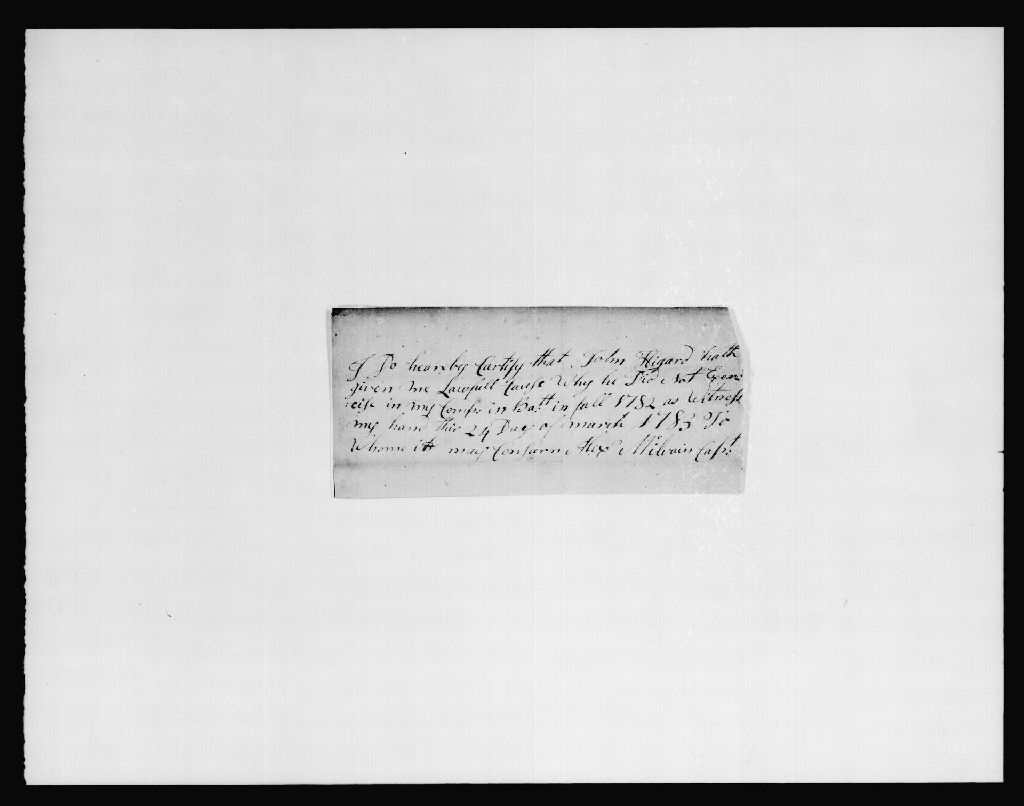 I Do hearby Cartify that John Higard hath
given me Lawfull Cause Why he Did Not Exer
cise in my Comp. in Batt in fall 1782 as Witness
my hand this 24 Day of march 1783 To
Whome itt may Consarn Alex Milvain Capt